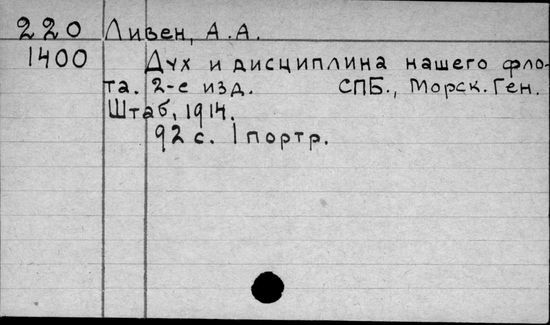 220 Ливен, А.А.
1400 Дух и дисциплина нашего фло-
та. 2-е изд. СПБ., Морск. Ген.
Штаб, 1914.
92 с. 1 портр.